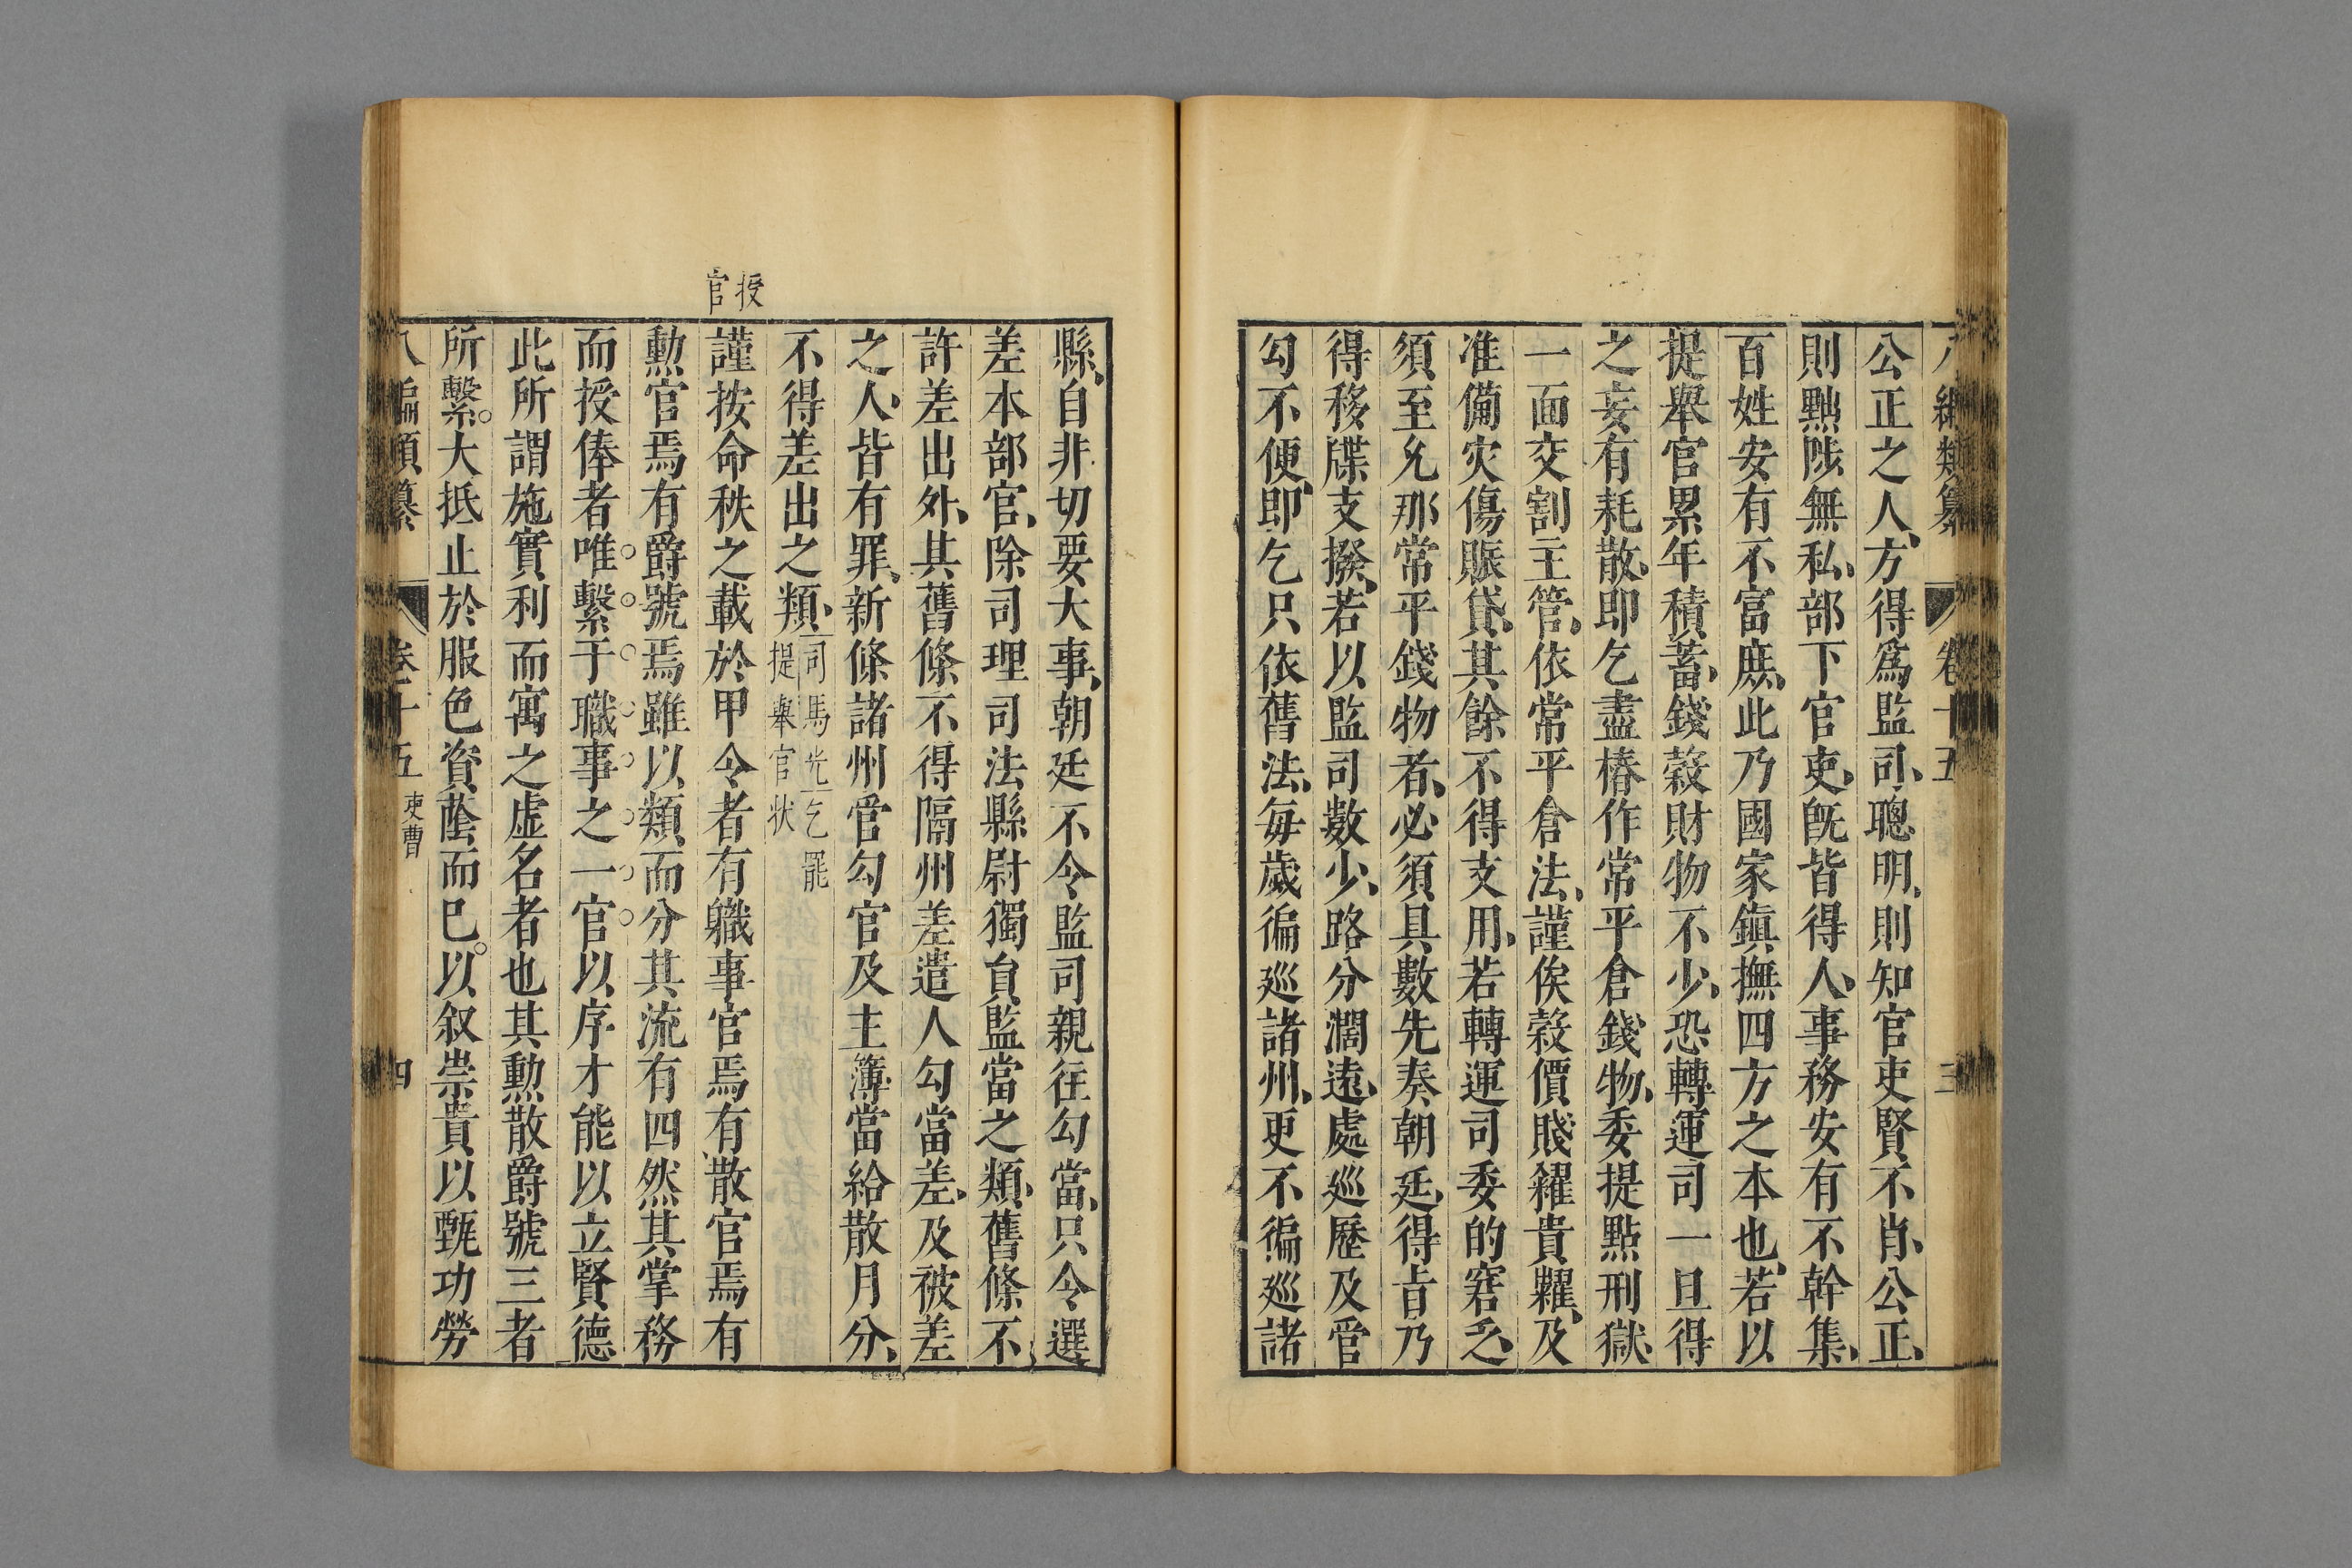 八編類纂 卷十五 三
公正之人、方得爲監司、聰明、則知官吏賢不肖、公正、
則黜陟無私、部下官吏、旣皆得人、事務安有不幹集、
百姓安有不富庶、此乃國家鎮撫四方之本也、若以
提舉官累年積蓄、錢穀財物不少、恐轉運司一旦得
之妄有耗散、即乞盡樁作常平倉錢物、委提點刑獄、
一面交割主管、依常平倉法、謹俟穀價賤糴貴糶、及
准備灾傷賑貸、其餘不得支用、若轉運司委的窘乏、
須至兊那常平錢物者、必須具數先奏朝廷、得㫖乃
得移牒支撥、若以監司數少、路分濶遠、處廵歷及管
勾不便、即乞只依舊法、每歲徧廵諸州、更不徧廵諸
縣、自非切要大事、朝廷不令監司親往勾當、只令選
差本部官、除司理司法縣尉獨貟監當之類、舊條不
許差出外、其舊條不得隔州差遣人勾當差、及被差
之人、皆有罪、新條諸州管勾官及主簿當給散月分、
不得差出之類、司馬光乞罷提舉官狀
授官
謹按命秩之載於甲令者有職事官焉有散官焉有
勲官焉有爵號焉雖以類而分其流有四然其掌務
而授俸者唯繫于職事之一官以序才能以立賢德
此所謂施實利而寓之虛名者也其勲散爵號三者
所繫。大抵止於服色資蔭而已。以叙崇貴以甄功勞
八編類纂 卷十五 吏曹 四